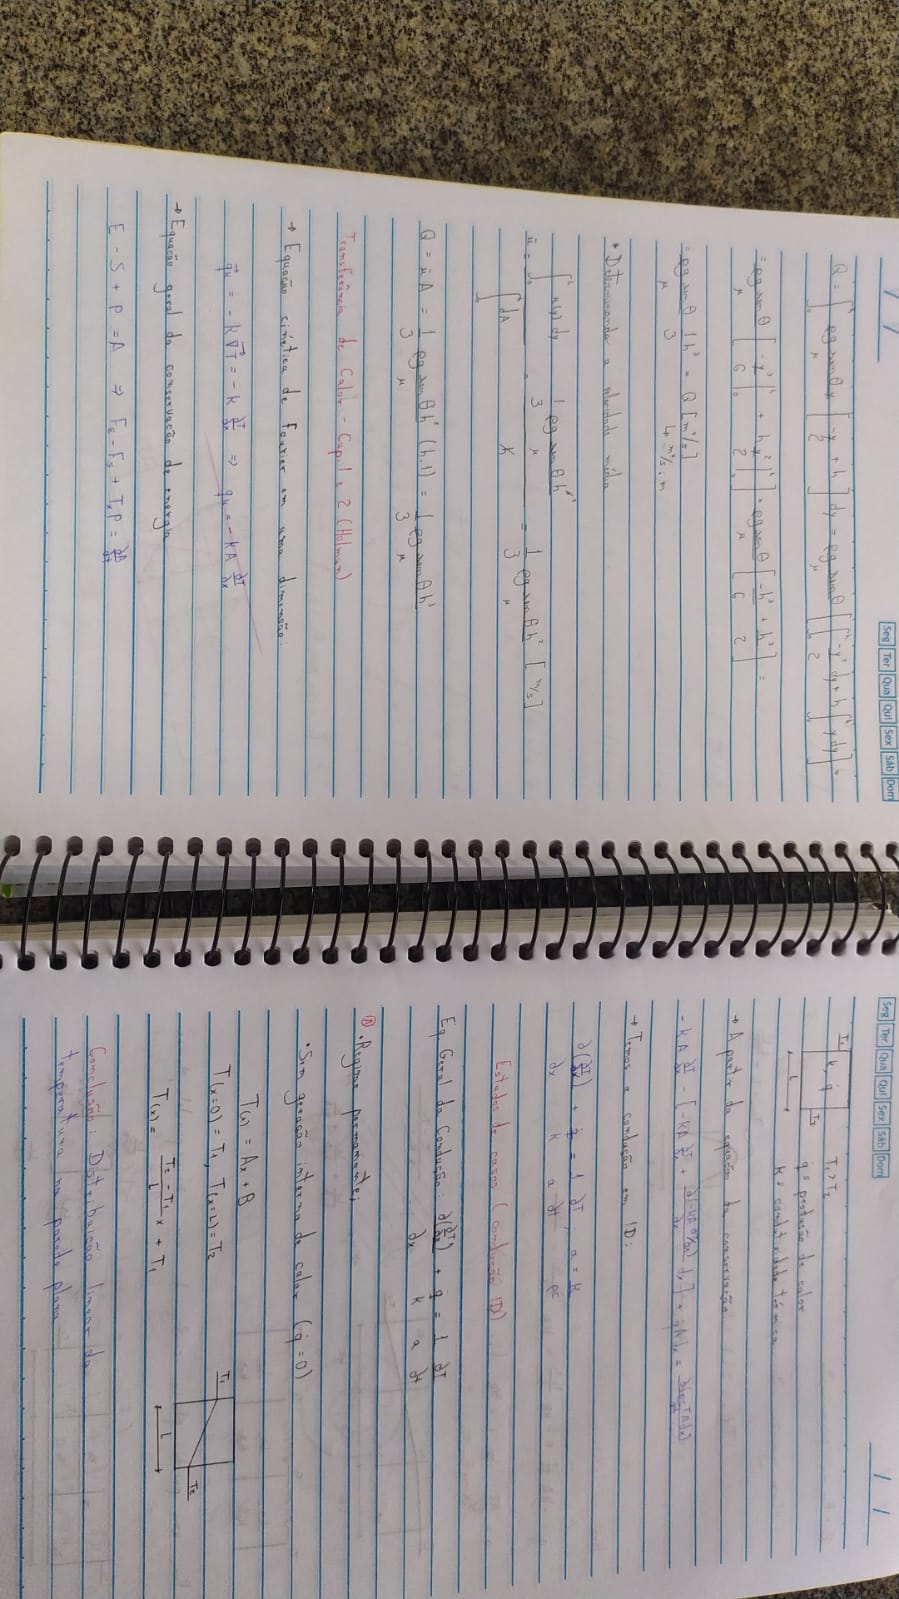 Seg Ter Qua Qui Sex Sáb Dom
Q = ∫₀ʰ ρg senθ/μ [-y²/2 + hy] dy = ρg senθ/μ [∫₀ʰ -y²/2 dy + h∫₀ʰ y dy] =
= ρg senθ/μ [-y³/6 |₀ʰ + h y²/2 |₀ʰ] = ρg senθ/μ [-h³/6 + h³/2] =
= ρg senθ/μ 1/3 h³ = Q [m²/s]
↳ m³/s.m
• Determinando a velocidade média
ū = ∫₀ʰ u(y) dy / ∫₀ʰ dA = 1/3 ρg senθ h³/μ / h = 1/3 ρg senθ h²/μ [m/s]
Q = ū A = 1/3 ρg senθ h²/μ (h.1) = 1/3 ρg senθ h³/μ
Transferência de Calor - Cap. 1 e 2 (Holman)
→ Equação cinética de Fourier em uma dimensão:
= -k∇T = -k ∂T/∂x ⇒ qx = -kA ∂T/∂x
→ Equação geral da conservação de energia
E - S + P = A ⇒ FE - FS + T.P = ∂A/∂t
Seg Ter Qua Qui Sex Sáb Dom
T₁ k, q̇ T₂ T₁ > T₂
L q̇ = produção de calor
k = condutividade térmica
→ A partir da equação da conservação
-kA ∂T/∂x - [-kA ∂T/∂x + ∂(-kA ∂T/∂x)/∂x dx] + q̇A dx =
→ Temos a condução em 1D:
∂(∂T/∂x)/∂x + q̇/k = 1/a ∂T/∂t, a = k/ρc
Estudos de casos (condução 1D)
Eq. Geral da Condução: ∂(∂T/∂x)/∂x + q̇/k = 1/a ∂T/∂t
Ⓐ • Regime permanente;
• Sem geração interna de calor (q̇ = 0)
T(x) = Ax + B
T(x=0) = T₁, T(x=L) = T₂
T₁ T₂ L
T(x) = T₂ - T₁/L x + T₁
Conclusão: Distribuição linear da
temperatura na parede plana